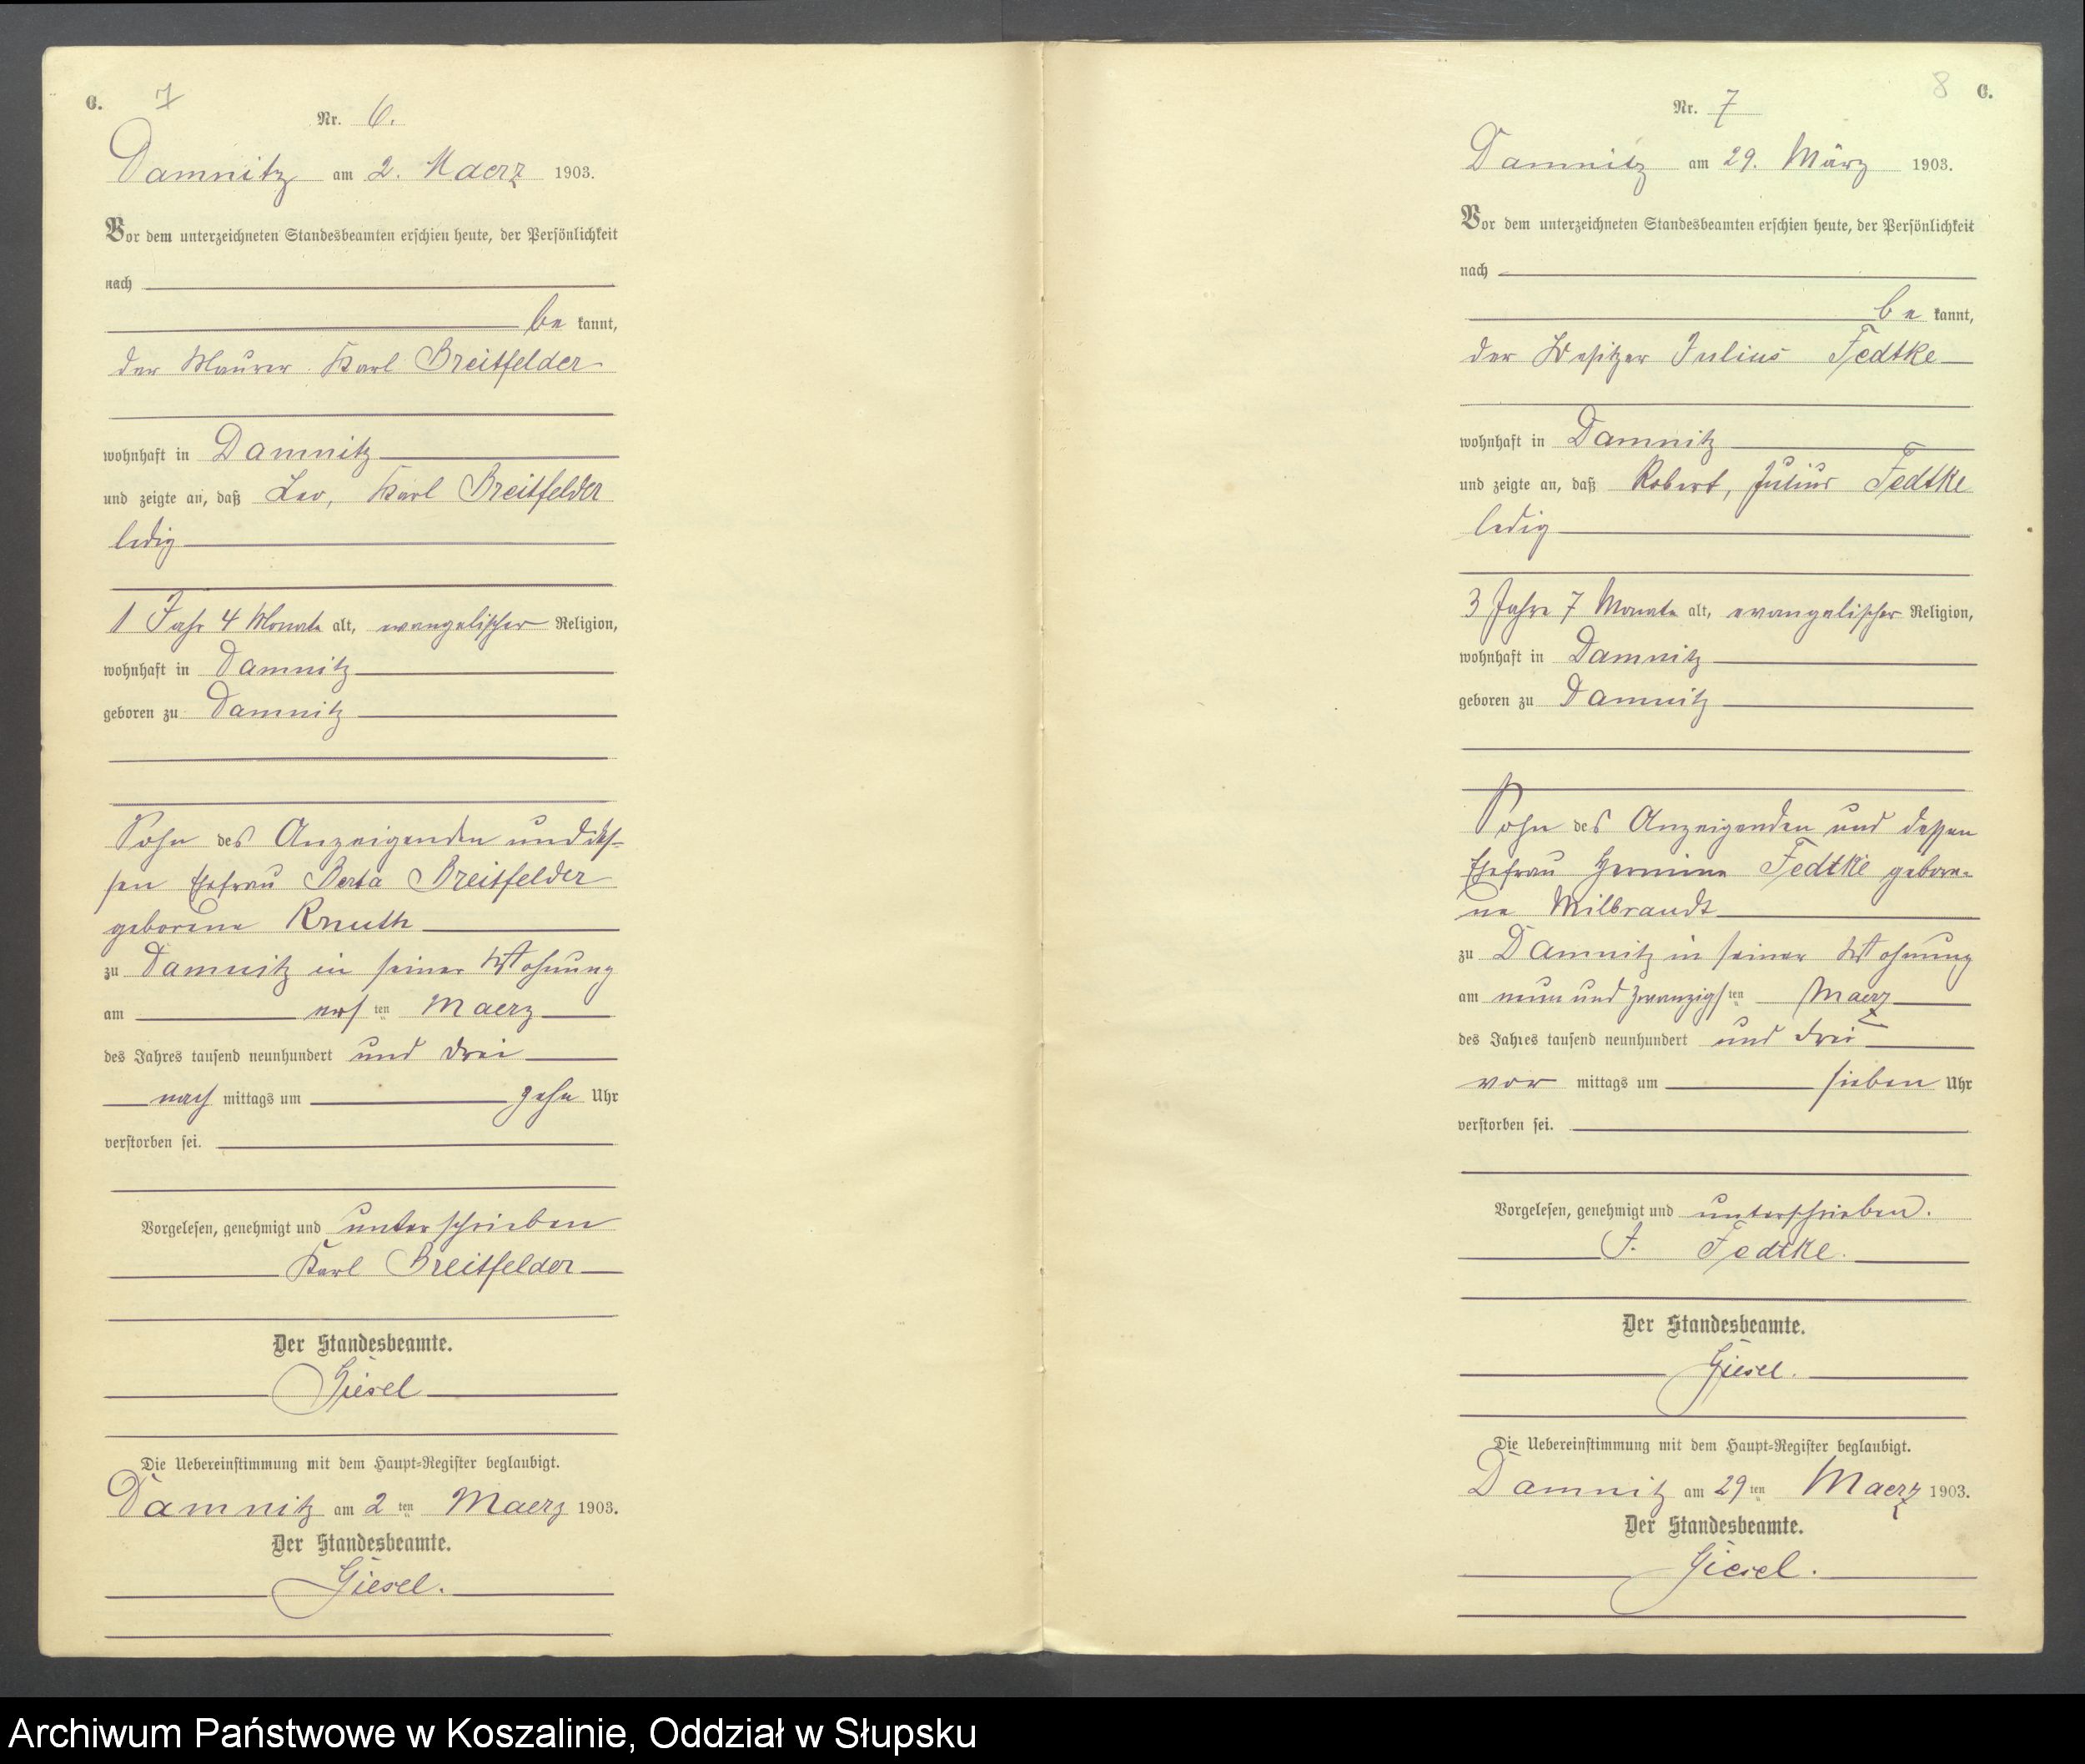 C. 7
Nr. 6.
Damnitz am 2. Maerz 1903.
Vor dem unterzeichneten Standesbeamten erschien heute, der Persönlichkeit
nach
be kannt,
der Maurer Karl Breitfelder
wohnhaft in Damnitz
und zeigte an, daß Leo, Karl Breitfelder
ledig
1 Jahr 4 Monate alt, evangelischer Religion,
wohnhaft in Damnitz
geboren zu Damnitz
Sohn des Anzeigenden und des-
sen Ehefrau Berta Breitfelder
geborene Knuth
zu Damnitz in seiner Wohnung
am ers ten Maerz
des Jahres tausend neunhundert und drei
nach mittags um zehn Uhr
verstorben sei.
Vorgelesen, genehmigt und unterschrieben
Karl Breitfelder
Der Standesbeamte.
Giesel
Die Uebereinstimmung mit dem Haupt-Register beglaubigt.
Damnitz am 2 ten Maerz 1903.
Der Standesbeamte.
Giesel.
8 C.
Nr. 7
Damnitz am 29. März 1903.
Vor dem unterzeichneten Standesbeamten erschien heute, der Persönlichkeit
nach
be kannt,
der Besitzer Julius Fedtke
wohnhaft in Damnitz
und zeigte an, daß Robert, Julius Fedtke
ledig
3 Jahre 7 Monate alt, evangelischer Religion,
wohnhaft in Damnitz
geboren zu Damnitz
Sohn des Anzeigenden und dessen
Ehefrau Hermine Fedtke gebore-
ne Milbrandt
zu Damnitz in seiner Wohnung
am neun und zwanzigs ten Maerz
des Jahres tausend neunhundert und drei
vor mittags um sieben Uhr
verstorben sei.
Vorgelesen, genehmigt und unterschrieben.
J. Fedtke.
Der Standesbeamte.
Giesel.
Die Uebereinstimmung mit dem Haupt-Register beglaubigt.
Damnitz am 29 ten Maerz 1903.
Der Standesbeamte.
Giesel.
Archiwum Państwowe w Koszalinie, Oddział w Słupsku